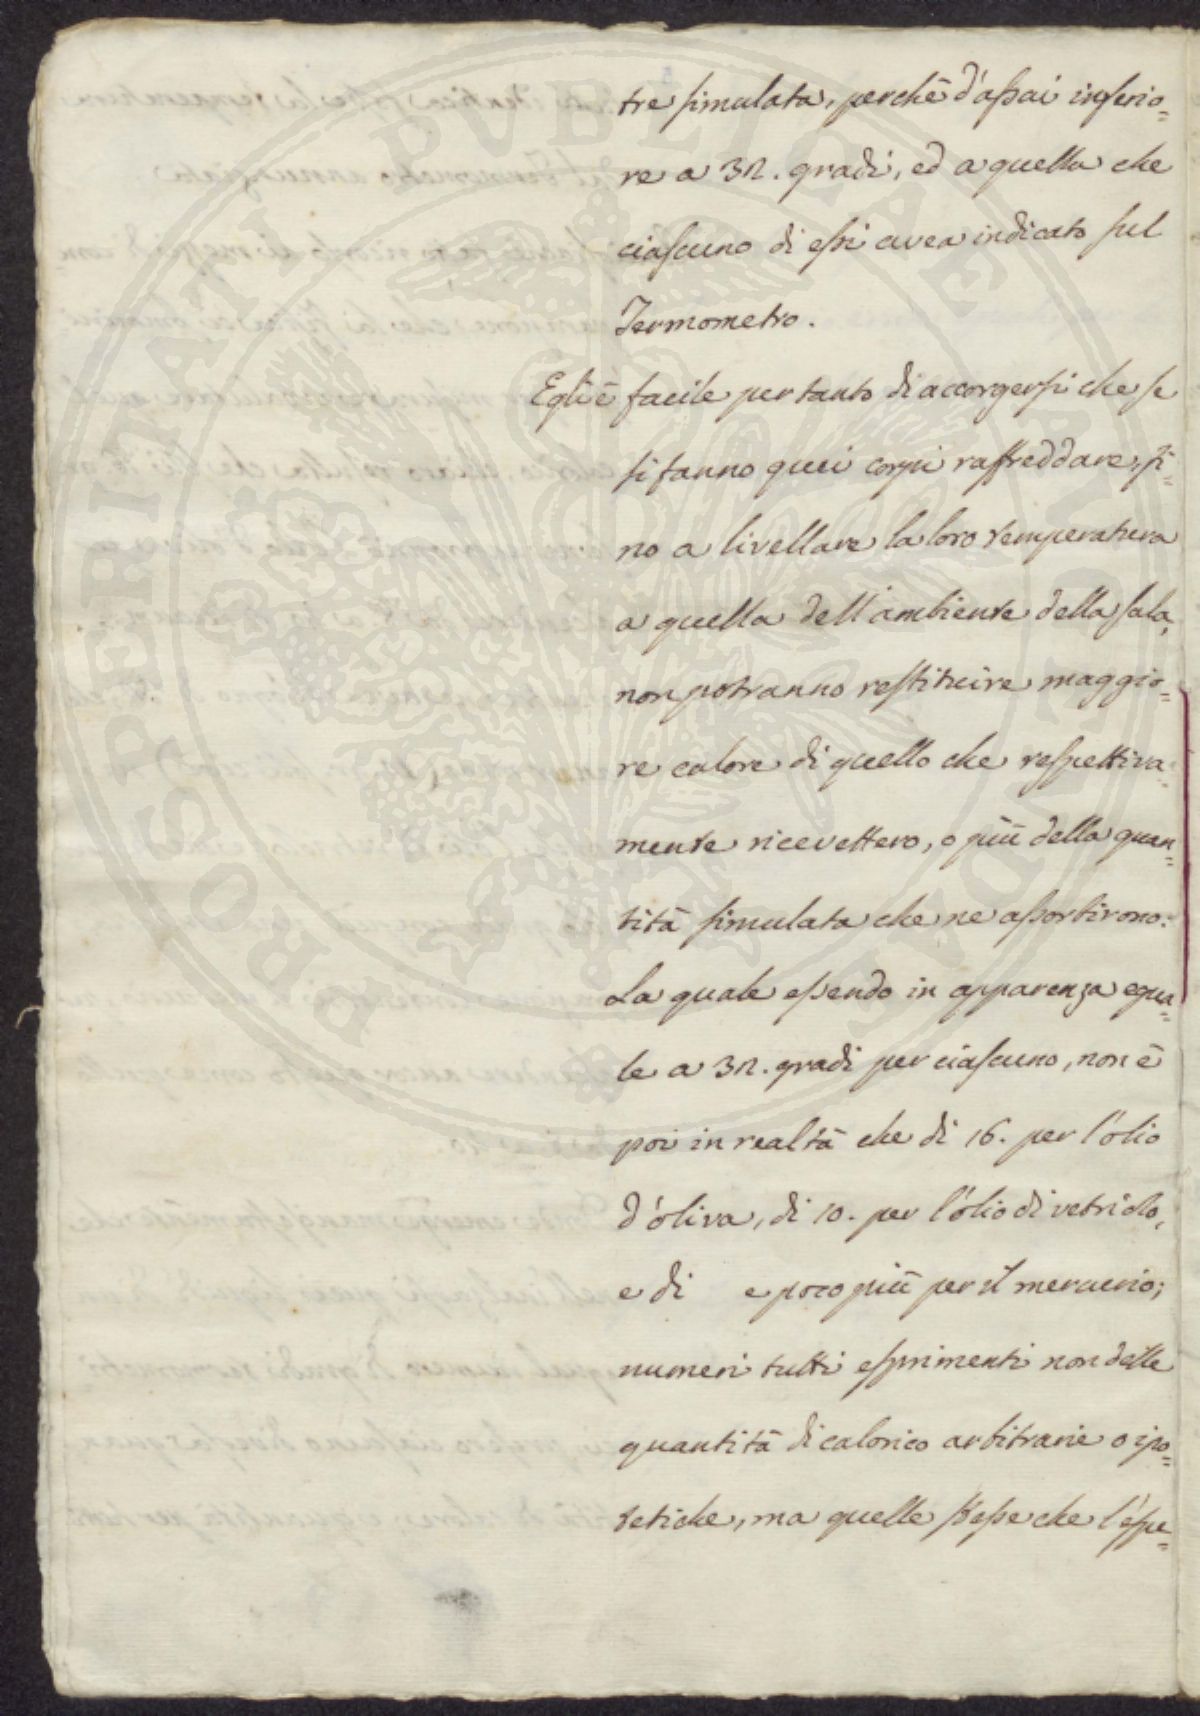 tre simulata, perchè d'assai inferio=
re a 32. gradi, ed a quella che
ciascuno di essi avea indicato sul
Termometro.
Egli è facile pertanto di accorgersi che se
si fanno quei corpi raffreddare, fi=
no a livellare la loro temperatura
a quella dell'ambiente della sala,
non potranno restituire maggio=
re calore di quello che respettiva=
mente ricevettero, o più della quan=
tità simulata che ne assorbirono:
La quale essendo in apparenza egua=
le a 32. gradi per ciascuno, non è
poi in realtà che di 16. per l'olio
d'oliva, di 10. per l'olio di vetriolo,
e di e poco più per il mercurio;
numeri tutti esprimenti non delle
quantità di calorico arbitrarie o ipo=
tetiche, ma quelle stesse che l'espe=
PROSPERITATI PVBLICAE AVGENDAE